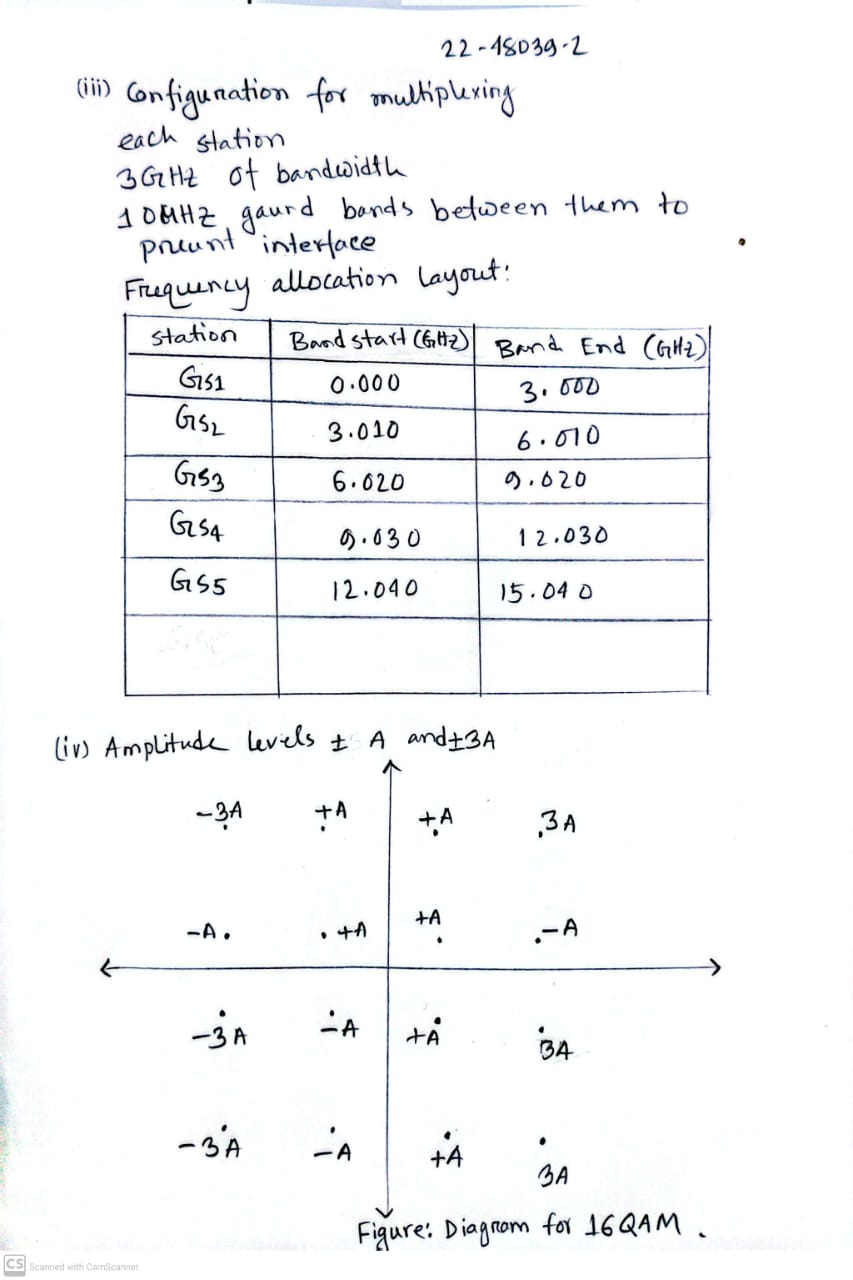 22-48039-2
(iii) Configuration for multiplexing
each station
3GHz of bandwidth
10MHz gaurd bands between them to
preunt interface
Frequency allocation layout:
station Band start (GHz) Band End (GHz)
GS1 0.000 3.000
GS2 3.010 6.010
GS3 6.020 9.020
GS4 9.030 12.030
GS5 12.040 15.040
(iv) Amplitude levels ± A and ±3A
-3A +A +A 3A
-A +A +A -A
-3A -A +A 3A
-3A -A +A 3A
Figure: Diagram for 16QAM.
CS Scanned with CamScanner